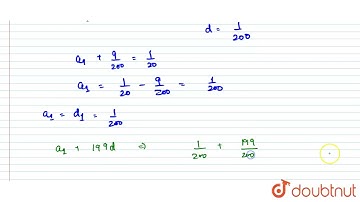 d = 1/200
a₁ + 9/200 = 1/20
a₁ = 1/20 - 9/200 = 1/200
a₁ = d₁ = 1/200
a₁ + 199d ⇒ 1/200 + 199/200
doubtnut